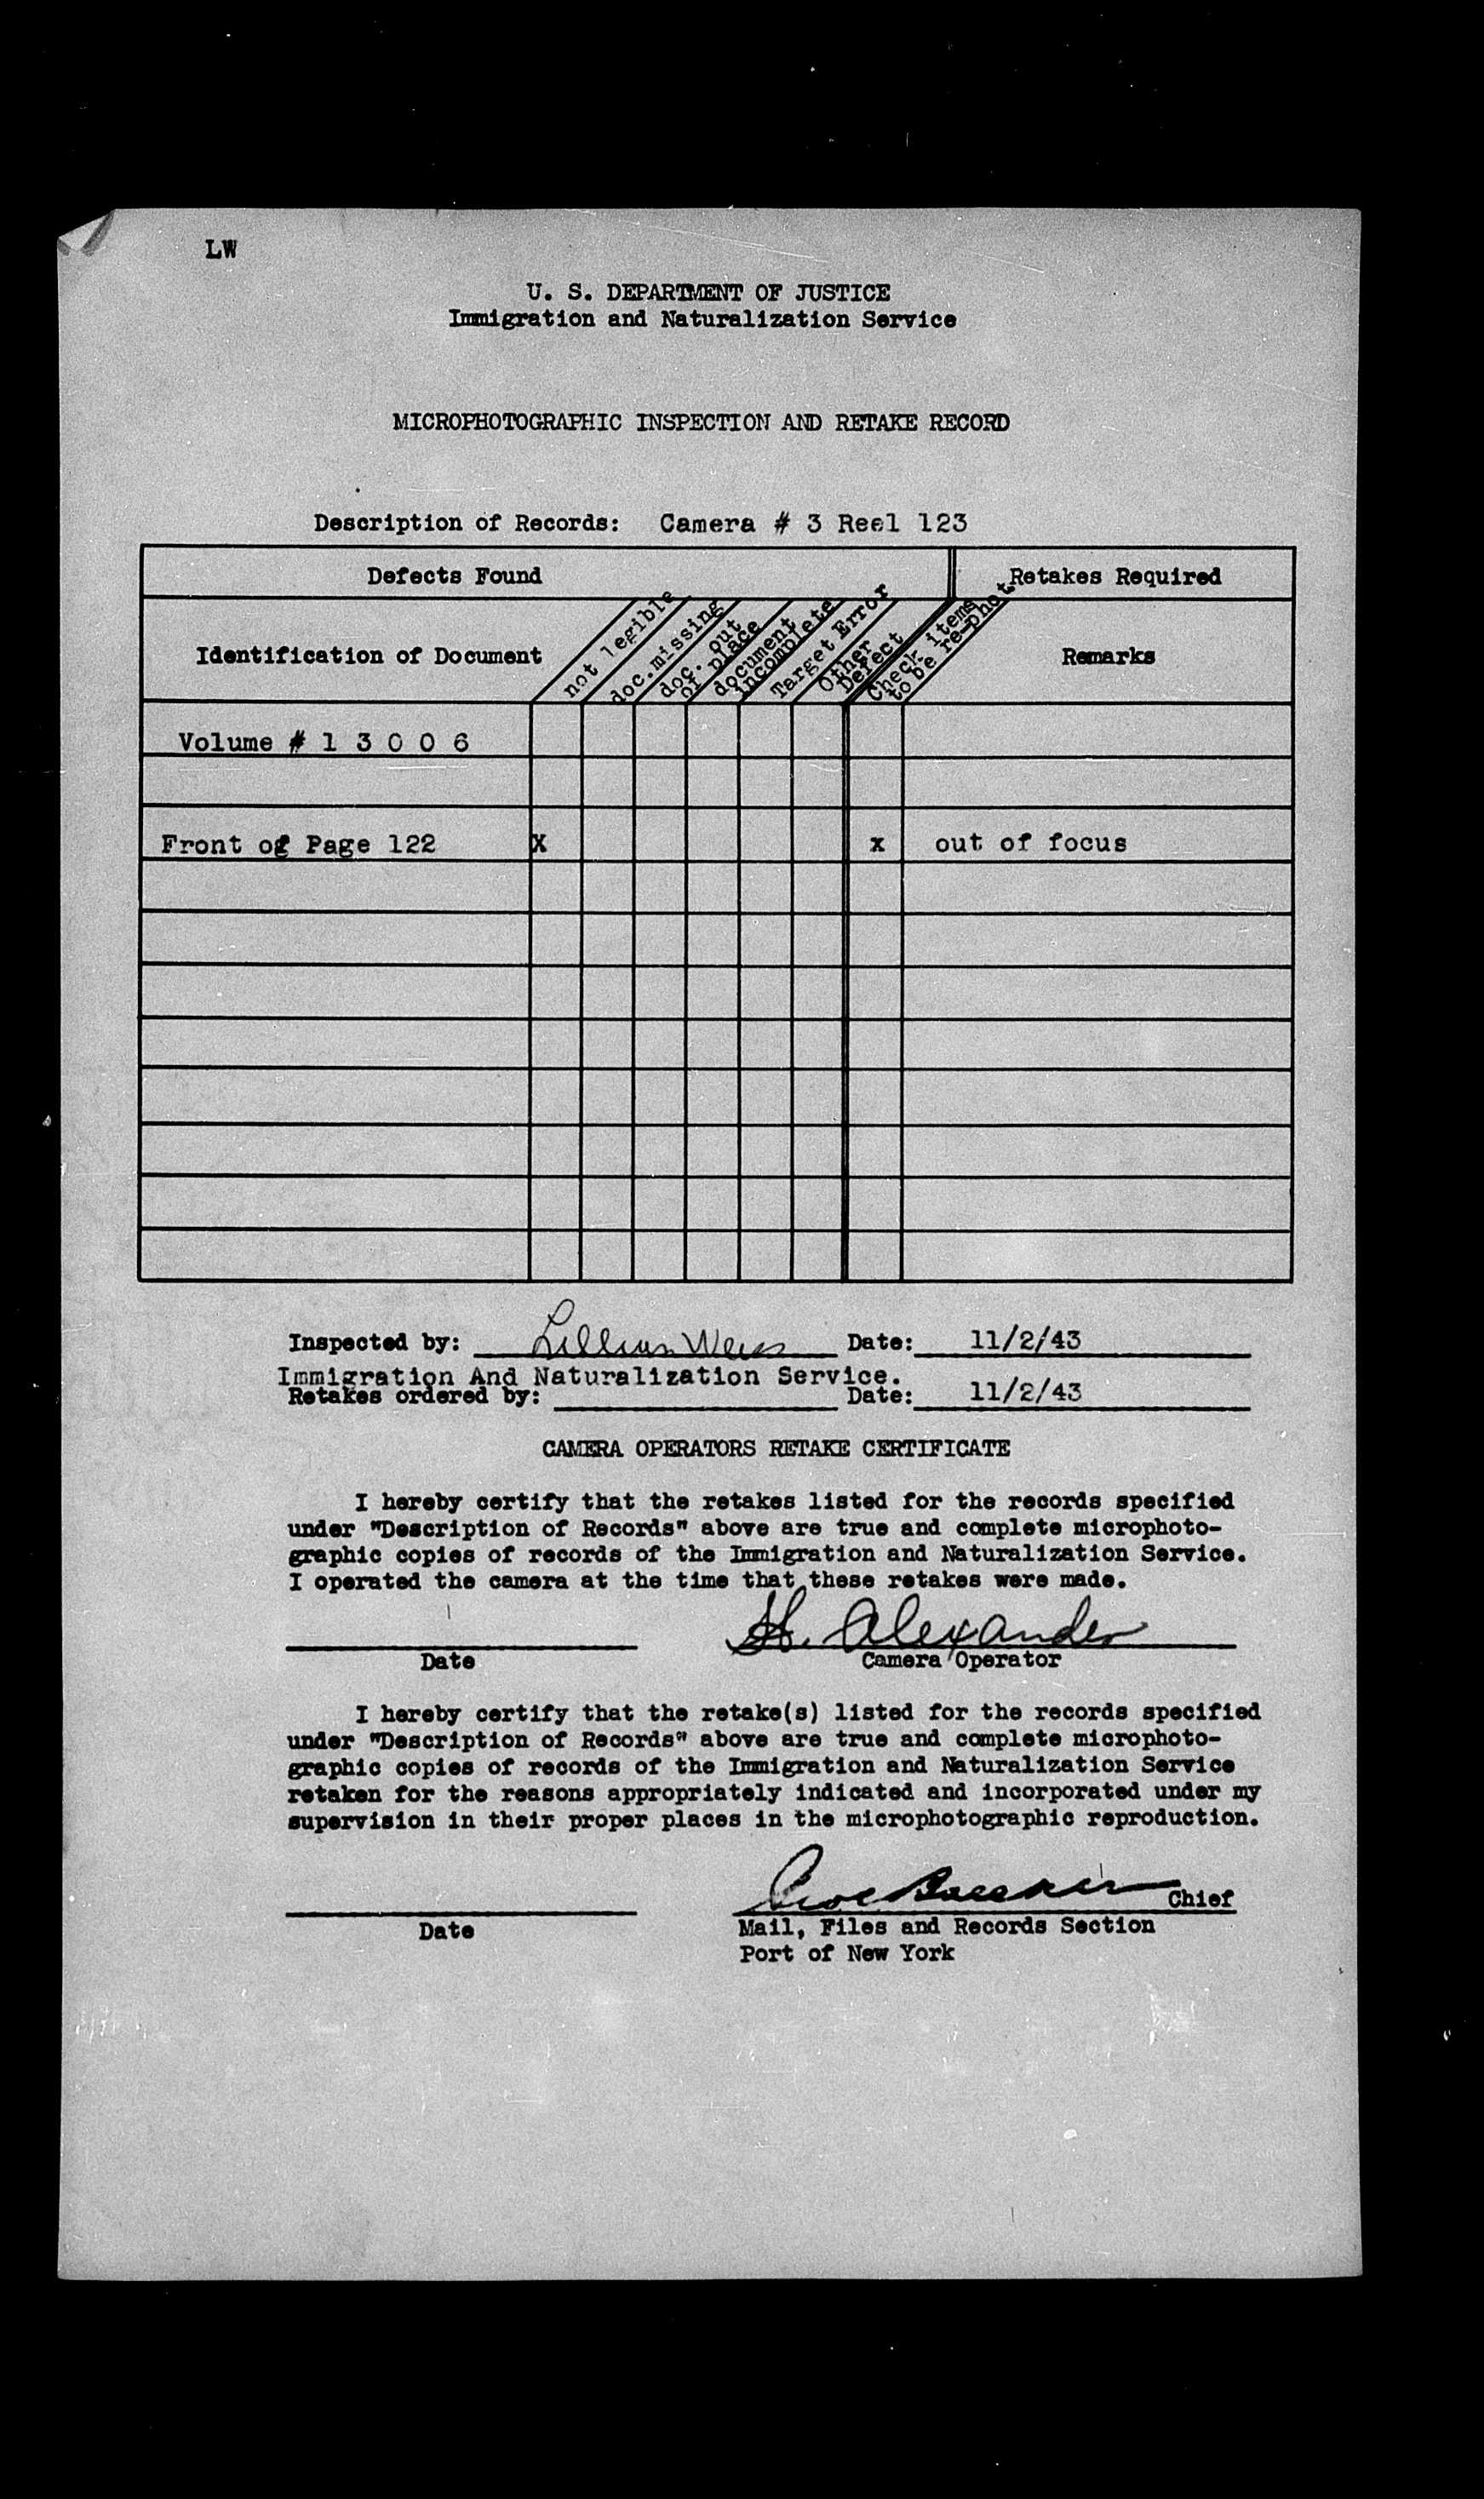 LW
U. S. DEPARTMENT OF JUSTICE
Immigration and Naturalization Service
MICROPHOTOGRAPHIC INSPECTION AND RETAKE RECORD
Description of Records: Camera # 3 Reel 123
Defects Found
Retakes Required
Identification of Document
not legible
doc.missing
doc. out
of place
document
incomplete
Target Error
Other
Defect
Check items
to be re-phot.
Remarks
Volume # 1 3 0 0 6
Front of Page 122 X x out of focus
Inspected by: Lillian Weiss Date: 11/2/43
Immigration And Naturalization Service.
Retakes ordered by: Date: 11/2/43
CAMERA OPERATORS RETAKE CERTIFICATE
I hereby certify that the retakes listed for the records specified
under "Description of Records" above are true and complete microphoto-
graphic copies of records of the Immigration and Naturalization Service.
I operated the camera at the time that these retakes were made.
H. Alexander
Date Camera Operator
I hereby certify that the retake(s) listed for the records specified
under "Description of Records" above are true and complete microphoto-
graphic copies of records of the Immigration and Naturalization Service
retaken for the reasons appropriately indicated and incorporated under my
supervision in their proper places in the microphotographic reproduction.
Chief
Date Mail, Files and Records Section
Port of New York